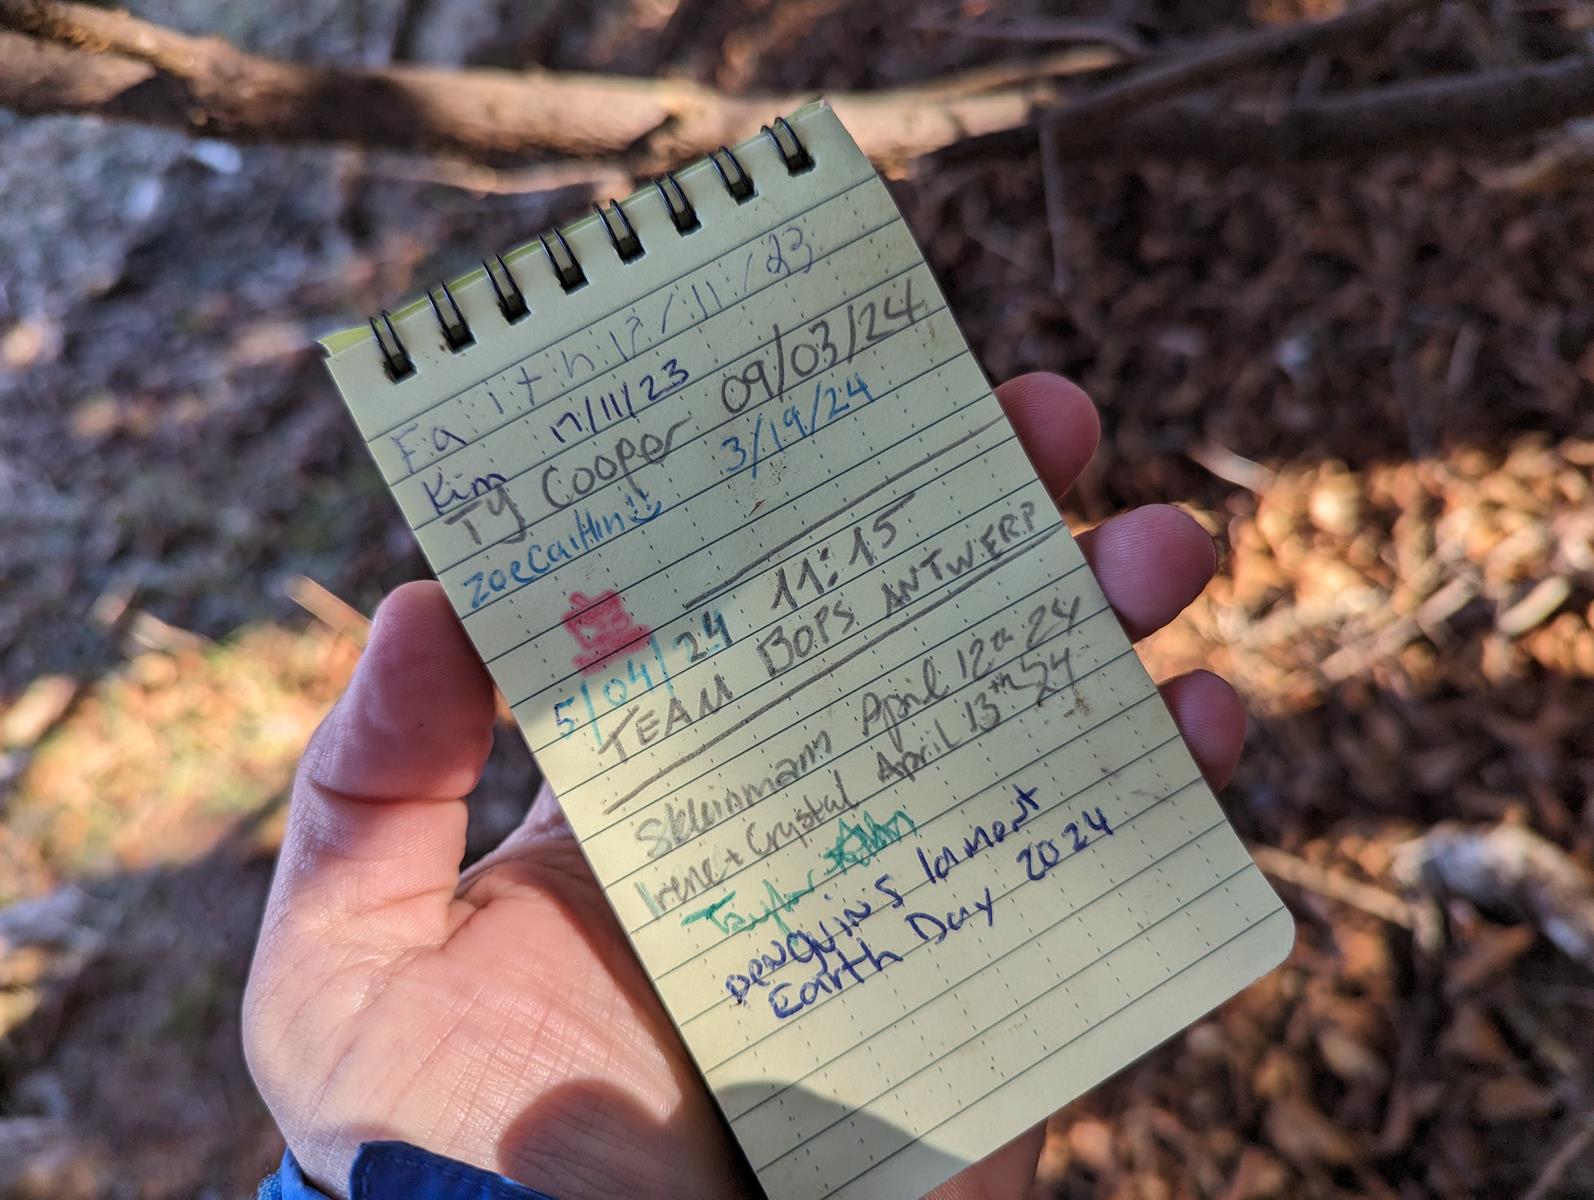 Faith 17/11/23
Kim 17/11/23
Ty Cooper 09/03/24
Zoe Caitlin 3/19/24
5/04/24 11:15
TEAM BOPS ANTWERP
April 12th 24
Irene + Crystal April 13th 24
Taylor
penguins lament
Earth Day 2024